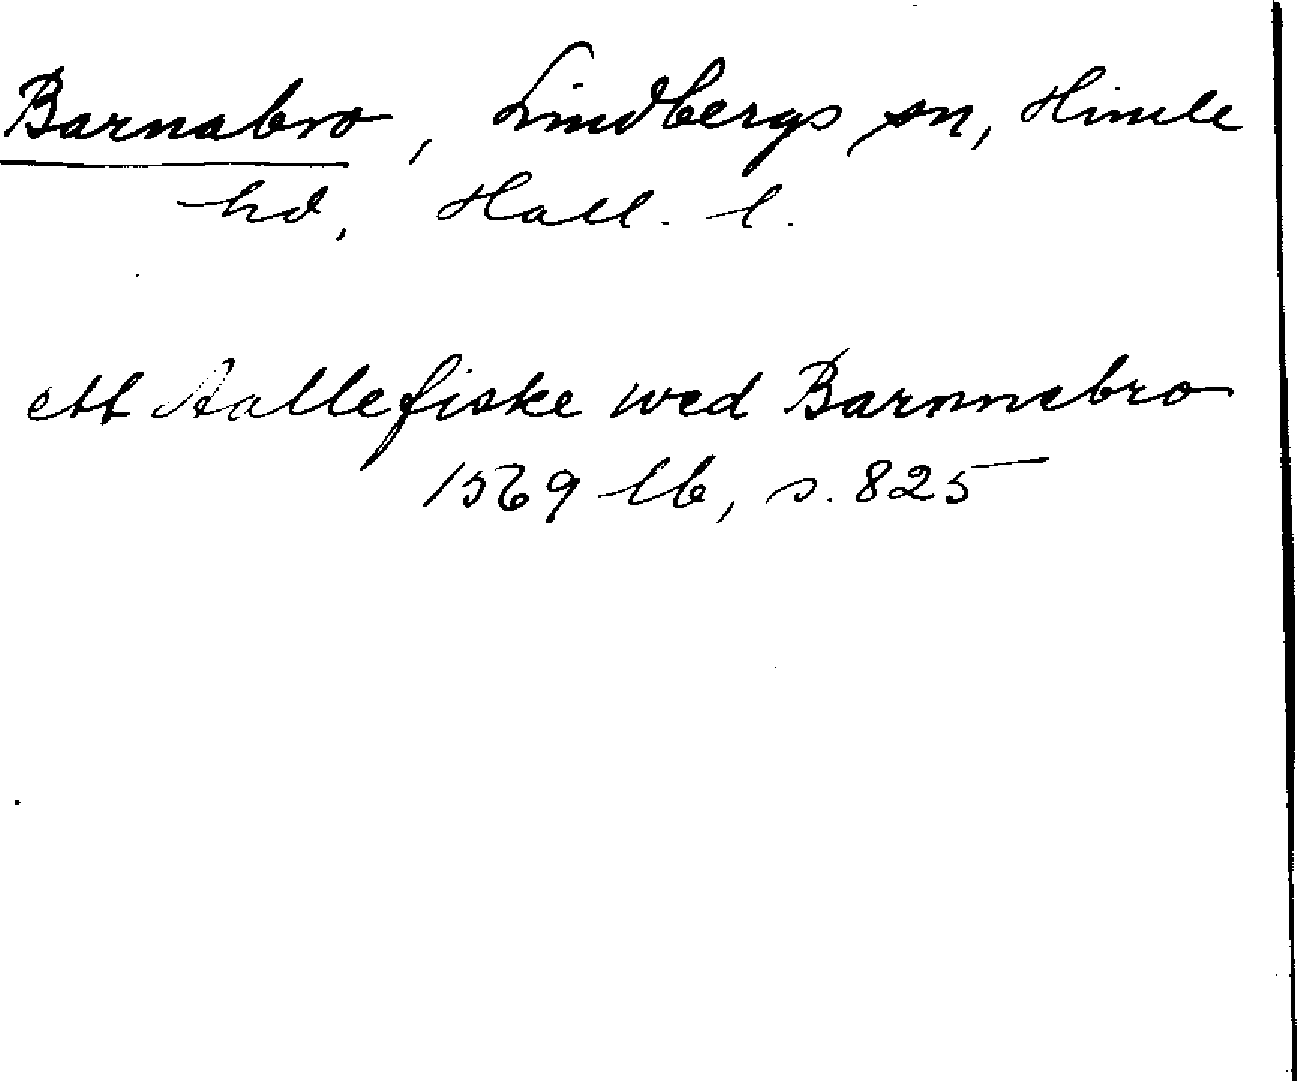 Barnabro, Lindbergs sn, Himle
hd, Hall. l.
ett Aallefiske wed Barnnebro
1569 lb, s. 825